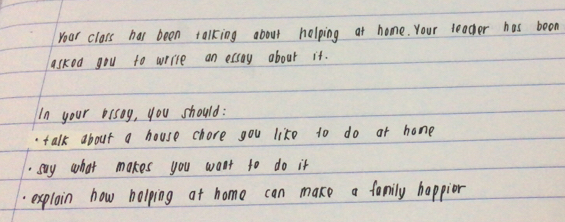 Your class has been talking about helping at home. Your teacher has been
asked you to write an essay about it.
In your essay, you should:
• talk about a house chore you like to do at home
• say what makes you want to do it
• explain how helping at home can make a family happier